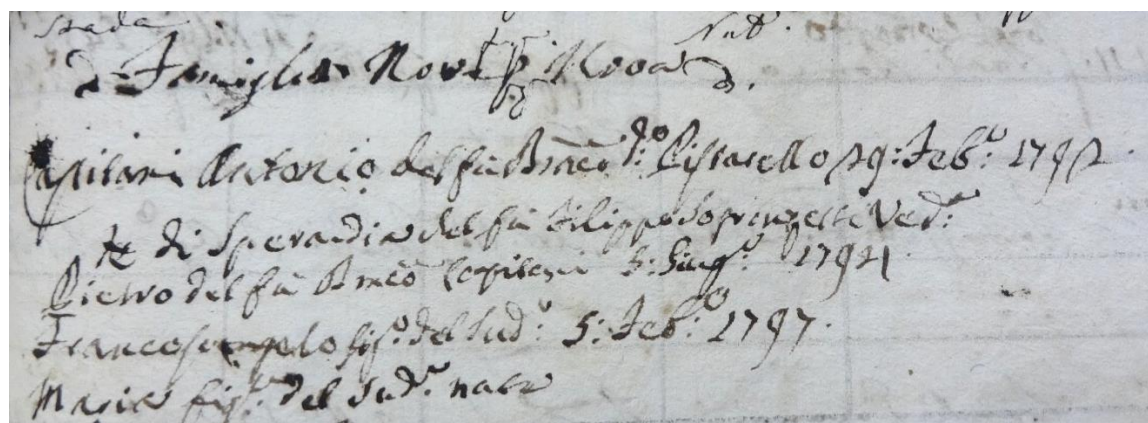 Strada Nub.
Famiglia Nov.
Capitani Antonio del fù Bmeo d.º Pistarello 29: Feb.º 1792
Fe di Sperandia del fù Filippo Ved.ª
Pietro del fù Bmeo Capitani 3: Giug.º
Francesc'Angelo fig.º del sud.º 5: Feb.º 1797.
Maria fig.ª del sud.º nata